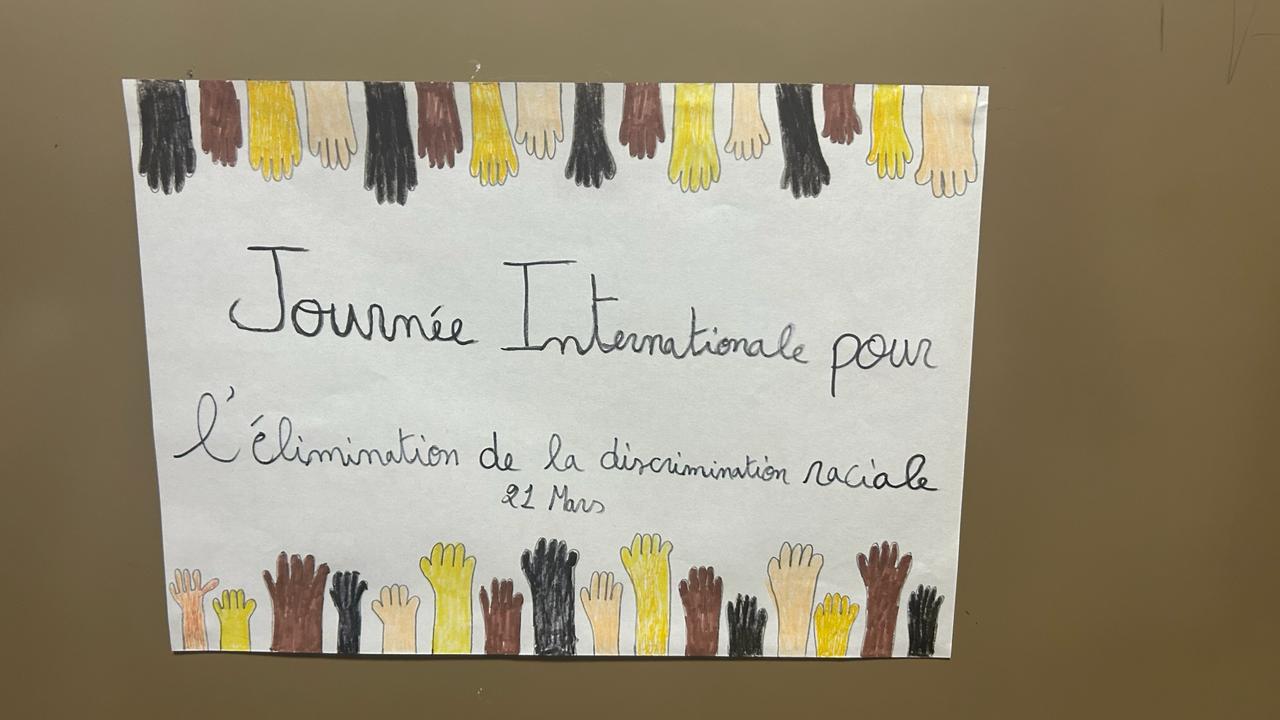 Journée Internationale pour
l'élimination de la discrimination raciale
21 Mars